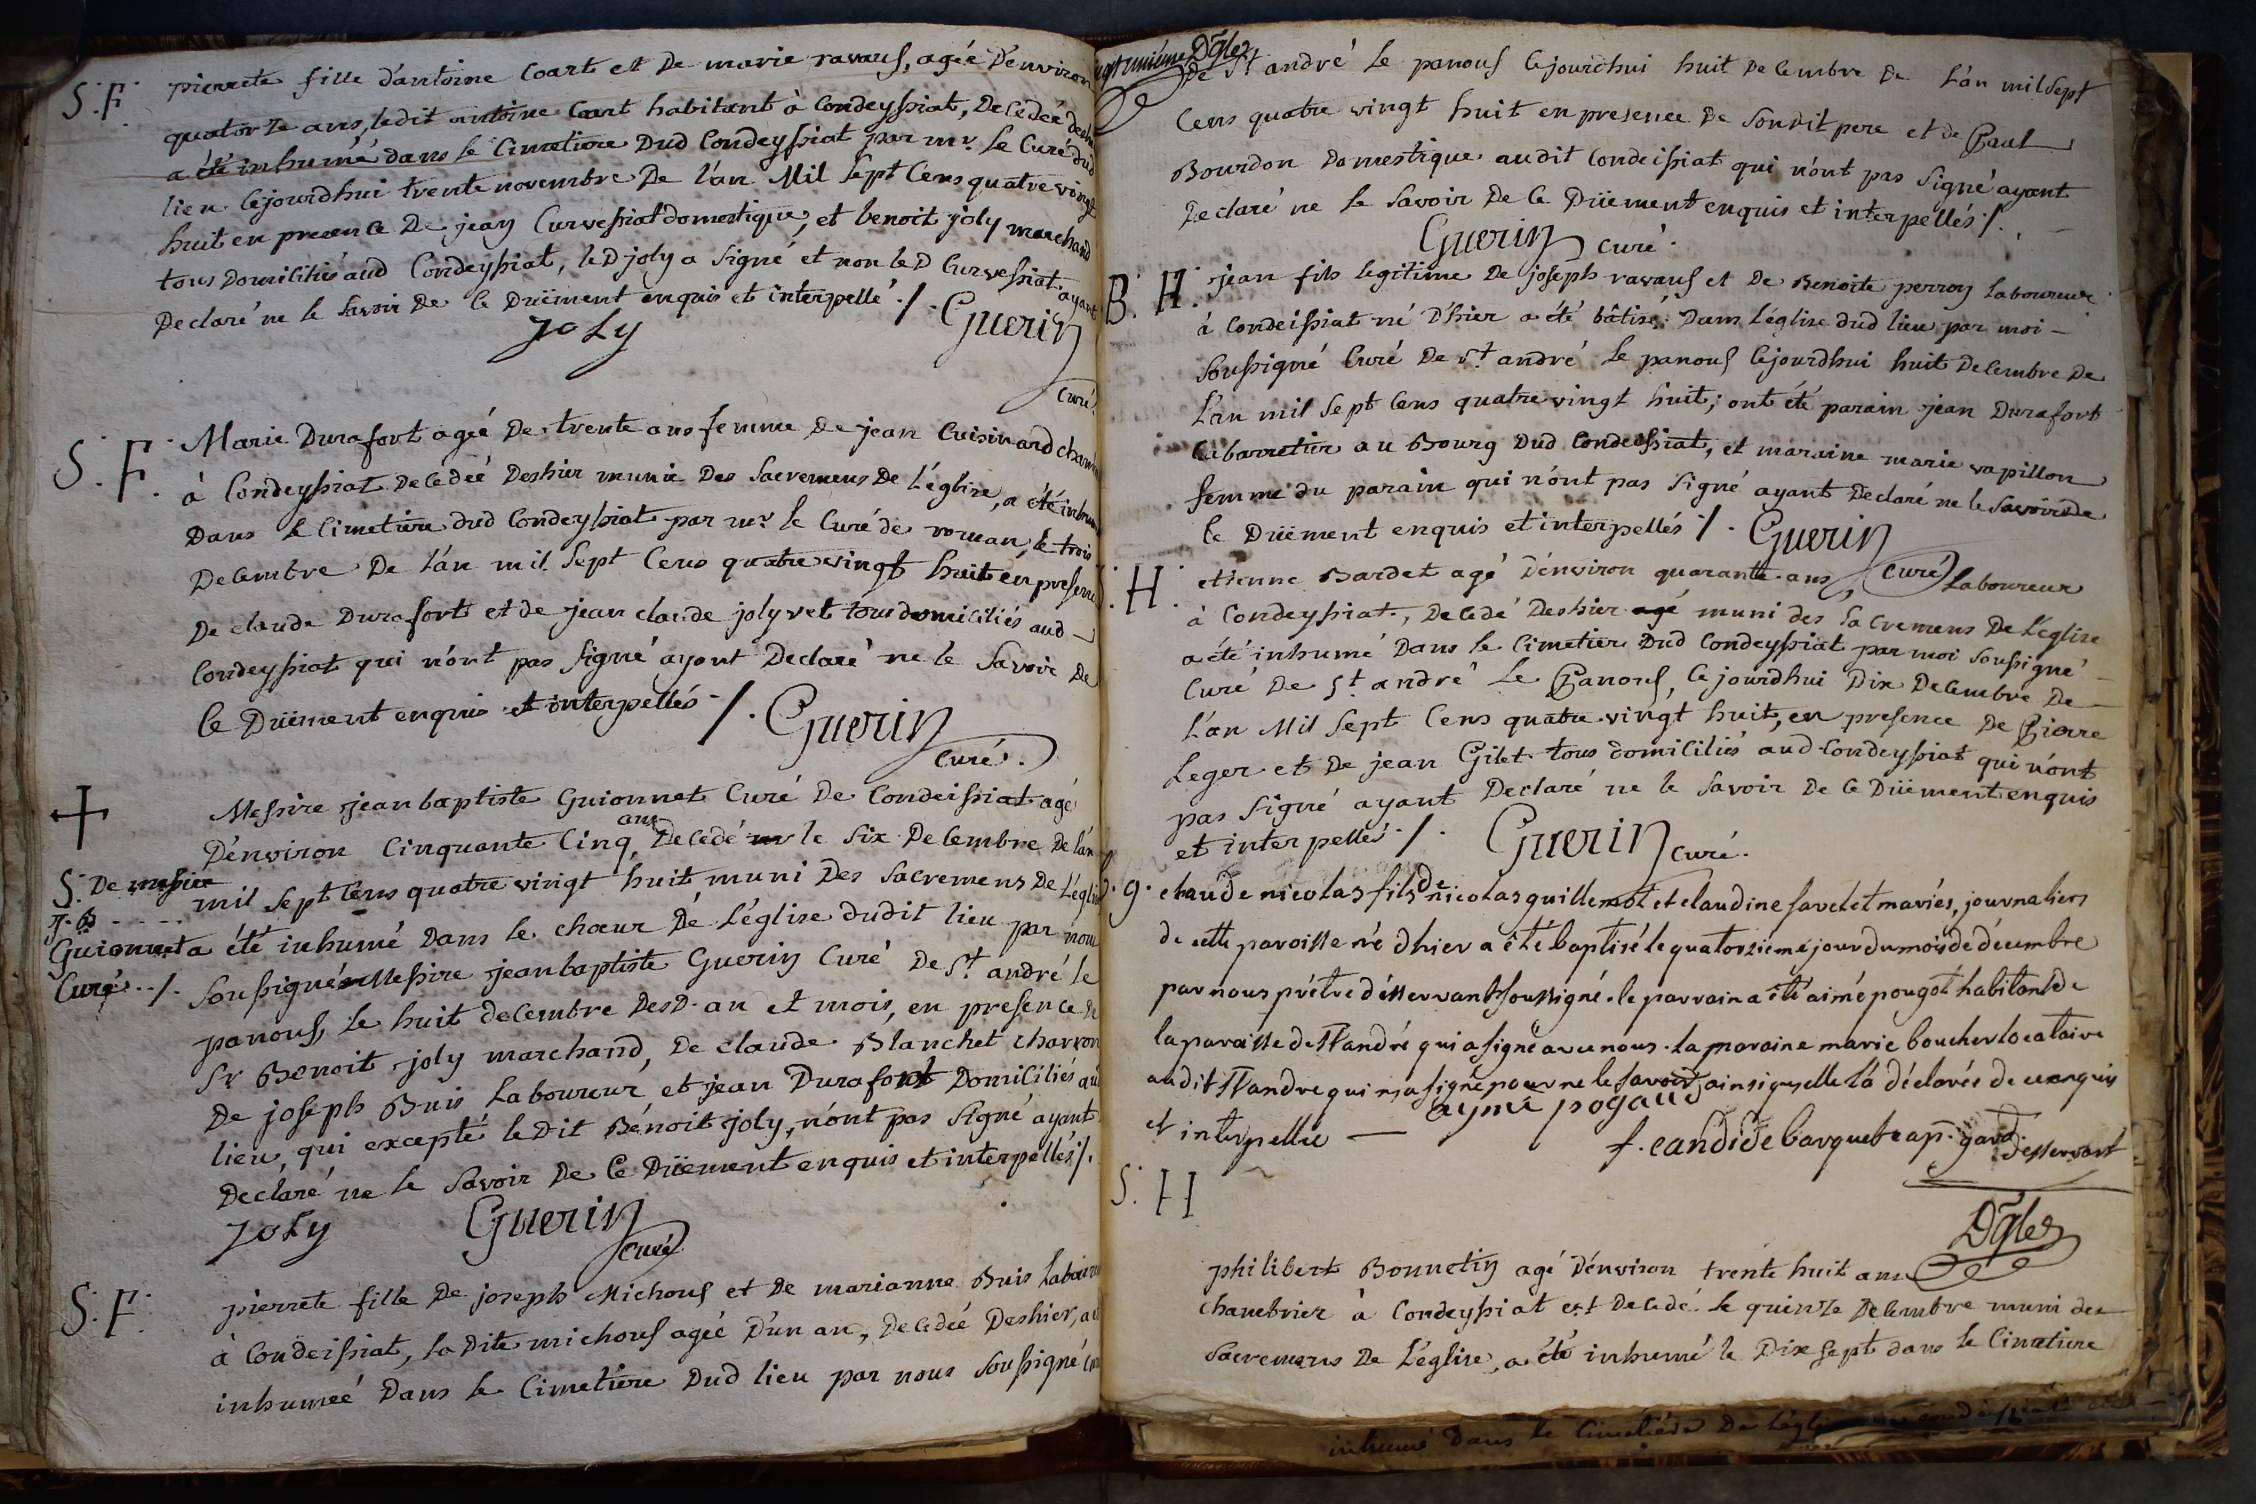 S. F. pierrete fille d'antoine Coart et De marie ravaus, ageé D'environ
quatorze ans, ledit antoine Coart habitant à Condeyssiat, Decedeé
a été inhumé dans le Cimetiere Dud Condeyssiat par mr. Le Curé dud
lieu Cejourdhui trente novembre De l'an Mil Sept Cens quatre vingt
huit en presence De jean Curvessiat domestique, et benoit joly marchand
tous Domiciliés aud Condeyssiat, leD joly a Signé et non leD Curvessiat ayant
Declaré ne le Savoir De Ce Düement enquis et interpellé ./. Guerin
Joly
Curé.
S. F. Marie Durafort ageé De trente ans femme De jean Cuisinard
à Condeyssiat Decedeé Deshier munie Des Sacremens De L'église, a été
Dans le Cimetiere dud Condeyssiat par mr. le Curé de roman, le trois
Decembre De l'an mil Sept Cens quatre vingt huit en
De claude Durafort et de jean claude jolyvet tous domiciliés aud
Condeyssiat qui n'ont pas Signé ayant Declaré ne le Savoir De
Ce Düement enquis et interpellés ./. Guerin
Curé.
Messire jean baptiste Guionnet Curé De Condeissiat agé
D'environ Cinquante Cinq ans Decedé le Six Decembre De l'an
S. De messire mil Sept Cens quatre vingt huit muni Des Sacremens De L'église
j. B. ....
Guionnet a été inhumé Dans le chœur De L'église dudit lieu par nous
Curé../. Soussigné Messire jean baptiste Guerin Curé De St. andré le
panous, le huit decembre DesD. an et mois, en presence De
Sr Benoit joly marchand, De claude Blanchet charron
De joseph Buis Laboureur et jean Durafort Domiciliés au
lieu, qui excepté leDit Bénoit joly, n'ont pas Signé ayant
Declaré ne le Savoir De Ce Düement enquis et interpellés ./.
Joly Guerin
Curé
S. F. pierrete fille De joseph Michous et De marianne Buis
à Condeissiat, la Dite michous ageé D'un an, Decedeé Deshier, a
inhumeé Dans le Cimetiere Dud lieu par nous Soussigné
De St andré le panous Cejourdhui huit Decembre De L'an mil Sept
Cens quatre vingt huit en presence De Sondit pere et de Paul
Bourdon Domestique audit Condeissiat qui n'ont pas Signé ayant
Declaré ne le Savoir De Ce Düement enquis et interpellés ./.
Guerin Curé.
B. H. jean fils legitime De joseph ravaus et De Benoite perron Laboureur
à Condeissiat né D'hier a été bâtisé Dans L'église dud lieu par moi
Soussigné Curé De St. andré Le panous Cejourdhui huit Decembre De
L'an mil Sept Cens quatre vingt huit; ont été parain jean Durafort
Cabarretier au Bourg Dud Condeissiat, et maraine marie vapillon
femme du parain qui n'ont pas Signé ayant Declaré ne le Savoir De
Ce Düement enquis et interpellés ./. Guerin
Curé
H. etienne Bardet agé D'environ quarante ans, Laboureur
à Condeyssiat, Decedé Deshier agé muni des Sacremens De L'église
a été inhumé Dans le Cimetier Dud Condeyssiat par moi Soussigné
Curé De St andré Le Panous, Cejourdhui Dix Decembre De
L'an Mil Sept Cens quatre vingt huit, en presence De Pierre
Leger et De jean Gilet tous domiciliés aud Condeyssiat qui n'ont
pas Signé ayant Declaré ne le Savoir De Ce Düement enquis
et interpellés ./. Guerin Curé.
g. claude nicolas fils de nicolas guillemot et claudine favelet mariés, journaliers
de cette paroisse né d'hier a été baptisé le quatorzieme jour du mois de décembre
par nous prêtre désservant soussigné. le parrain a été aimé pougot habitant de
la paroisse de St andré qui a signé avec nous. la maraine marie boucher locataire
audit St andre qui n'a signé pour ne le savoir ainsi quelle l'a déclarés de ce enquis
et interpellée — aymé pogaud
f. candide barquet cap. gard. desservant
S. H
Philibert Bonnetin agé D'environ trente huit ans
chambrier à Condeyssiat est Decedé le quinze Decembre muni des
Sacremens De L'église, a été inhumé le Dix Sept dans le Cimetiere
inhumé dans le Cimetiére De